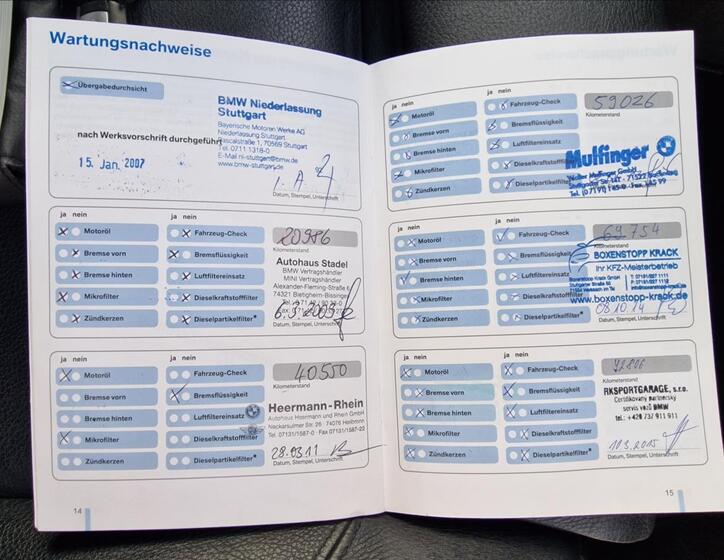 Wartungsnachweise
Übergabedurchsicht
BMW Niederlassung
Stuttgart
Bayerische Motoren Werke AG
Niederlassung Stuttgart
70569 Stuttgart
Tel. 0711 1318-0
www.bmw-stuttgart.de
nach Werksvorschrift durchgeführt
15. Jan. 2007
Datum, Stempel, Unterschrift
ja nein
ja nein
Motoröl
Fahrzeug-Check
20986
Bremse vorn
Bremsflüssigkeit
Kilometerstand
Bremse hinten
Luftfiltereinsatz
Mikrofilter
Dieselkraftstofffilter
Zündkerzen
Dieselpartikelfilter*
Autohaus Stadel
BMW Vertragshändler
MINI Vertragshändler
Alexander-Fleming-Straße
74321 Bietigheim-Bissingen
Datum, Stempel, Unterschrift
ja nein
ja nein
Motoröl
Fahrzeug-Check
40550
Bremse vorn
Bremsflüssigkeit
Kilometerstand
Bremse hinten
Luftfiltereinsatz
Mikrofilter
Dieselkraftstofffilter
Zündkerzen
Dieselpartikelfilter*
Heermann-Rhein
Autohaus Heermann und Rhein GmbH
Neckarsulmer Str. 26 · 74076 Heilbronn
Tel. 07131/1587-0 · Fax 07131/1587-22
28.03.11
Datum, Stempel, Unterschrift
14
ja nein
ja nein
Motoröl
Fahrzeug-Check
59026
Bremse vorn
Bremsflüssigkeit
Kilometerstand
Bremse hinten
Luftfiltereinsatz
Mikrofilter
Dieselkraftstofffilter
Zündkerzen
Dieselpartikelfilter*
Mulfinger
Walter Mulfinger GmbH
ja nein
ja nein
Motoröl
Fahrzeug-Check
69.754
Bremse vorn
Bremsflüssigkeit
Kilometerstand
Bremse hinten
Luftfiltereinsatz
Mikrofilter
Dieselkraftstofffilter
Zündkerzen
Dieselpartikelfilter*
BOXENSTOPP KRACK
Ihr KFZ-Meisterbetrieb
Boxenstopp Krack GmbH
www.boxenstopp-krack.de
08.10.14
Datum, Stempel, Unterschrift
ja nein
ja nein
Motoröl
Fahrzeug-Check
Bremse vorn
Bremsflüssigkeit
Kilometerstand
Bremse hinten
Luftfiltereinsatz
Mikrofilter
Dieselkraftstofffilter
Zündkerzen
Dieselpartikelfilter*
RKSPORTGARAGE, s.r.o.
Certifikovaný partnerský
servis vozů BMW
tel.: +420 737 911 911
Datum, Stempel, Unterschrift
15